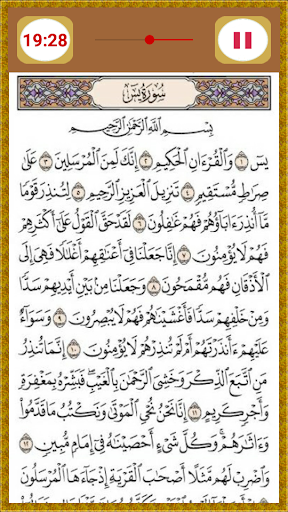 19:28
سُورَةُ يسٓ
بِسْمِ ٱللَّهِ ٱلرَّحْمَٰنِ ٱلرَّحِيمِ
يسٓ ١ وَٱلْقُرْءَانِ ٱلْحَكِيمِ ٢ إِنَّكَ لَمِنَ ٱلْمُرْسَلِينَ ٣ عَلَىٰ
صِرَٰطٍ مُّسْتَقِيمٍ ٤ تَنزِيلَ ٱلْعَزِيزِ ٱلرَّحِيمِ ٥ لِتُنذِرَ قَوْمًا
مَّآ أُنذِرَ ءَابَآؤُهُمْ فَهُمْ غَٰفِلُونَ ٦ لَقَدْ حَقَّ ٱلْقَوْلُ عَلَىٰٓ أَكْثَرِهِمْ
فَهُمْ لَا يُؤْمِنُونَ ٧ إِنَّا جَعَلْنَا فِىٓ أَعْنَٰقِهِمْ أَغْلَٰلًا فَهِىَ إِلَى
ٱلْأَذْقَانِ فَهُم مُّقْمَحُونَ ٨ وَجَعَلْنَا مِنۢ بَيْنِ أَيْدِيهِمْ سَدًّا
وَمِنْ خَلْفِهِمْ سَدًّا فَأَغْشَيْنَٰهُمْ فَهُمْ لَا يُبْصِرُونَ ٩ وَسَوَآءٌ
عَلَيْهِمْ ءَأَنذَرْتَهُمْ أَمْ لَمْ تُنذِرْهُمْ لَا يُؤْمِنُونَ ١٠ إِنَّمَا تُنذِرُ
مَنِ ٱتَّبَعَ ٱلذِّكْرَ وَخَشِىَ ٱلرَّحْمَٰنَ بِٱلْغَيْبِ فَبَشِّرْهُ بِمَغْفِرَةٍ
وَأَجْرٍ كَرِيمٍ ١١ إِنَّا نَحْنُ نُحْىِ ٱلْمَوْتَىٰ وَنَكْتُبُ مَا قَدَّمُوا۟
وَءَاثَٰرَهُمْ وَكُلَّ شَىْءٍ أَحْصَيْنَٰهُ فِىٓ إِمَامٍ مُّبِينٍ ١٢
وَٱضْرِبْ لَهُم مَّثَلًا أَصْحَٰبَ ٱلْقَرْيَةِ إِذْ جَآءَهَا ٱلْمُرْسَلُونَ